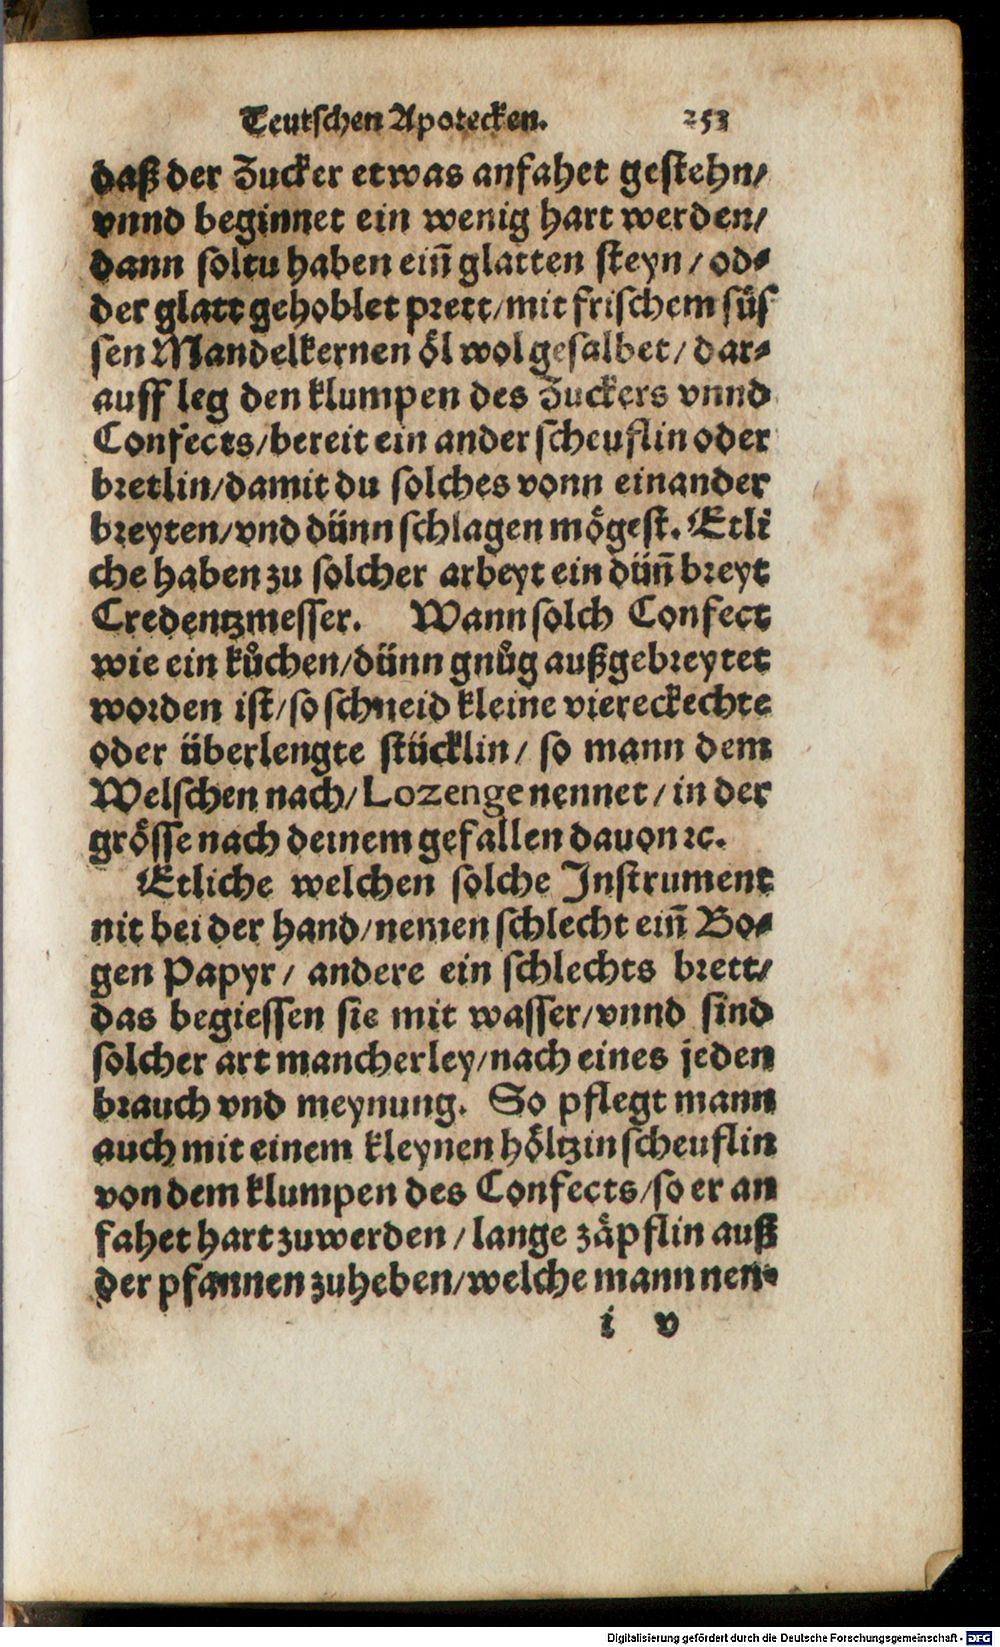 Teutschen Apotecken. 253
daß der Zucker etwas anfahet gestehn/
vnnd beginnet ein wenig hart werden/
dann soltu haben einn̄ glatten steyn / od⸗
der glatt gehoblet prett/mit frischem süs
sen Mandelkernen öl wol gesalbet / dar⸗
auff leg den klumpen des Zuckers vnnd
Confects/bereit ein ander scheuflin oder
bretlin/damit du solches vonn einander
breyten/vnd dünn schlagen mögest. Etli
che haben zu solcher arbeyt ein dün̄ breyt
Credentzmesser. Wann solch Confect
wie ein kůchen/dünn gnůg außgebreytet
worden ist/so schneid kleine viereckechte
oder überlengte stücklin/ so mann dem
Welschen nach/Lozenge nennet / in der
grösse nach deinem gefallen dauon ꝛc.
Etliche welchen solche Instrument
nit bei der hand/nemen schlecht ein̄ Bo⸗
gen Papyr/ andere ein schlechts brett/
das begiessen sie mit wasser/vnnd sind
solcher art mancherley/nach eines jeden
brauch vnd meynung. So pflegt mann
auch mit einem kleynen höltzin scheuflin
von dem klumpen des Confects/so er an
fahet hart zuwerden / lange zäpflin auß
der pfannen zuheben/welche mann nen⸗
i v
Digitalisierung gefördert durch die Deutsche Forschungsgemeinschaft - DFG